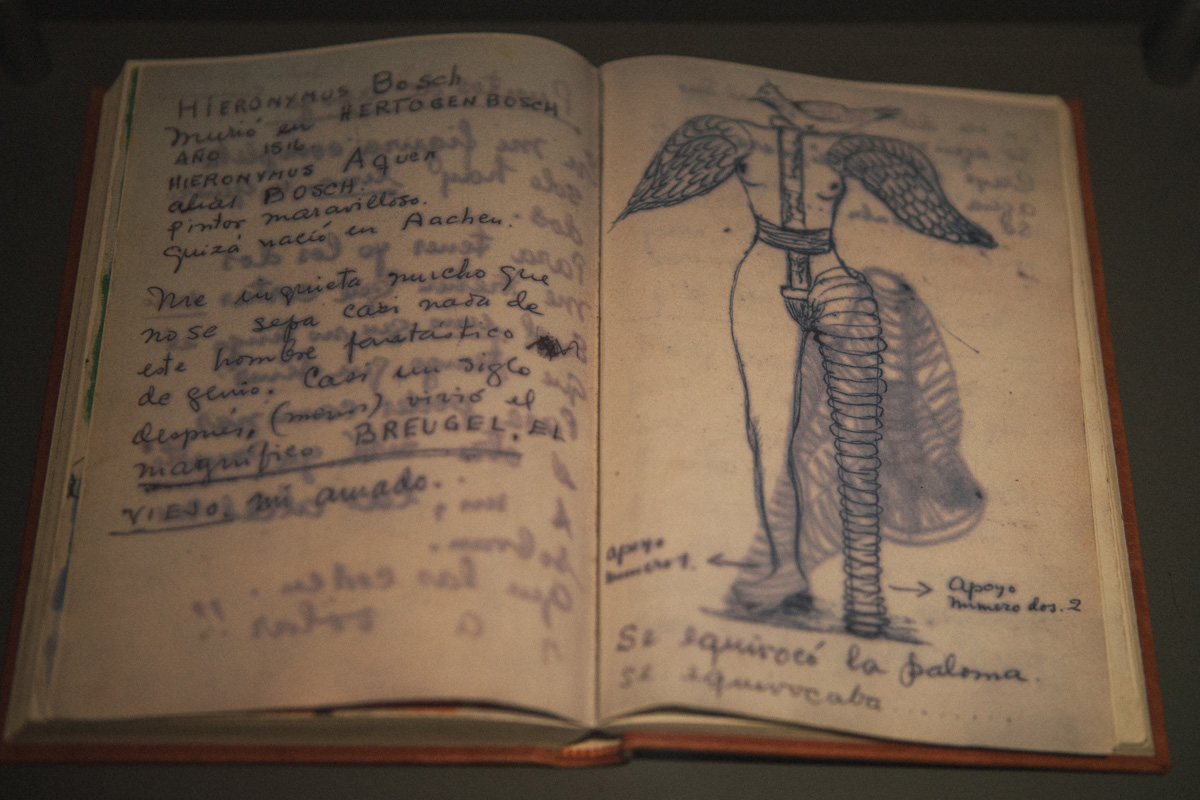 HIERONYMUS Bosch
HERTOGENBOSCH
Murió en
AÑO 1516
HIERONYMUS Aquen
alias BOSCH.
pintor maravilloso.
quizá nació en Aachen.
Me inquieta mucho que
no se sepa casi nada de
este hombre fantástico
de genio. Casi un siglo
después, (menos) vivió el
magnífico BREUGEL, EL
VIEJO, mi amado.
apoyo
numero 1.
Apoyo
numero dos. 2
Se equivocó la paloma.
se equivocaba........